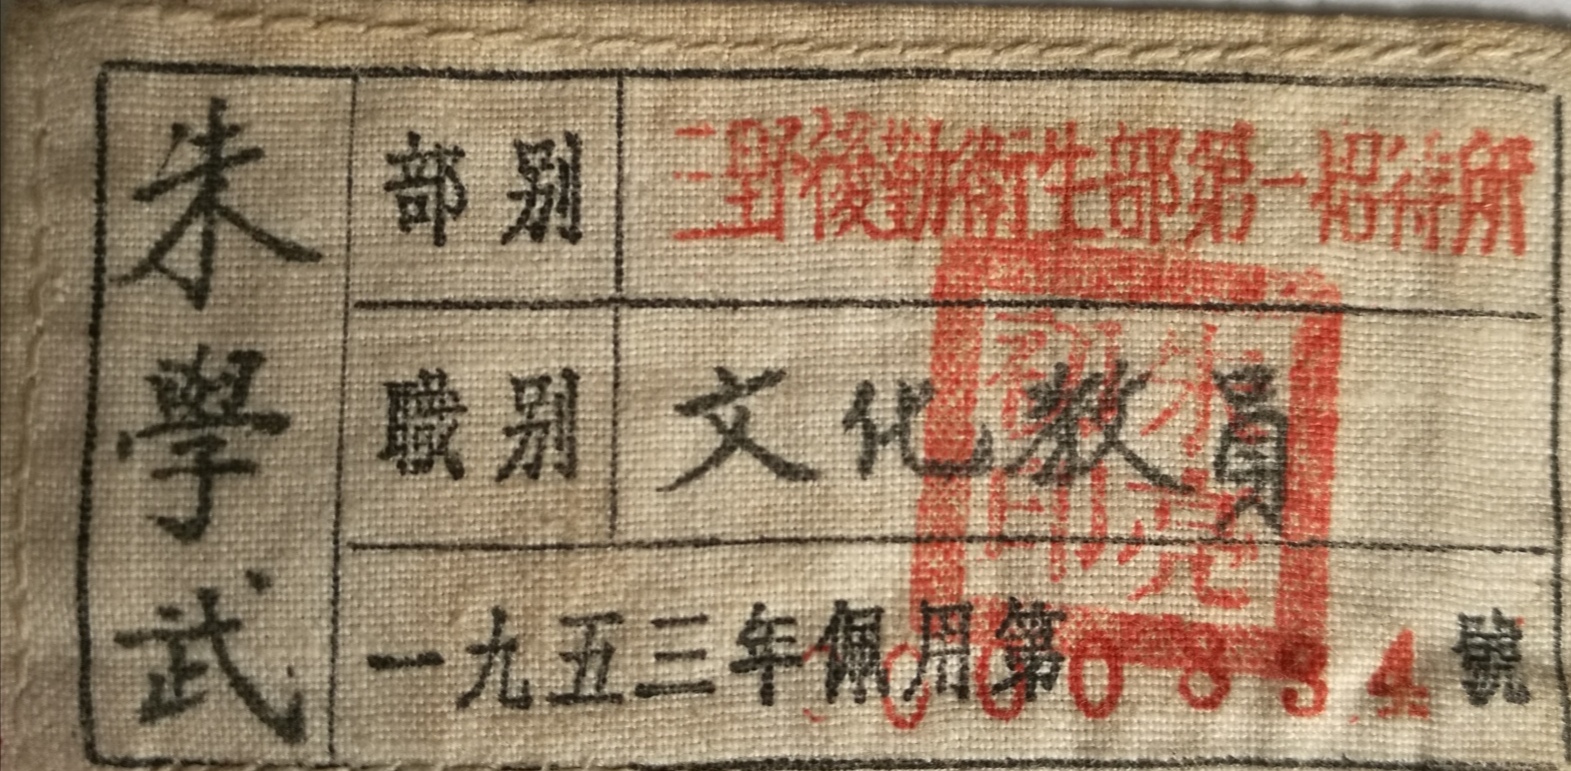 朱學武
部別 三野後勤衛生部第一招待所
職別 文化教員
一九五三年佩用第 號